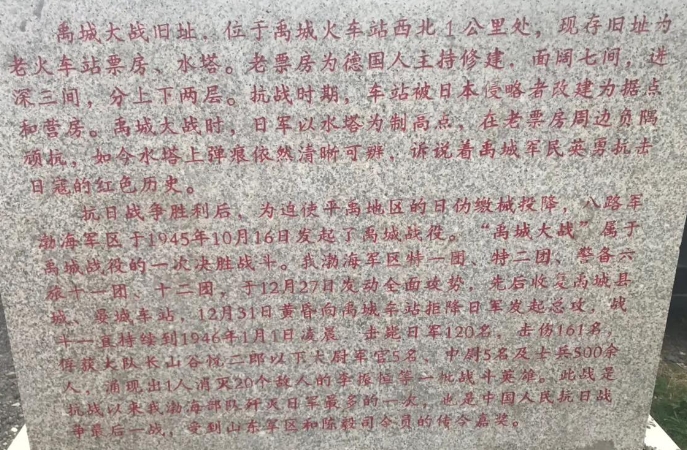 禹城大战旧址，位于禹城火车站西北1公里处，现存旧址为
老火车站票房、水塔。老票房为德国人主持修建，面阔七间，进
深三间，分上下两层。抗战时期，车站被日本侵略者改建为据点
和营房。禹城大战时，日军以水塔为制高点，在老票房周边负隅
顽抗，如今水塔上弹痕依然清晰可辨，诉说着禹城军民英勇抗击
日寇的红色历史。
抗日战争胜利后，为迫使平禹地区的日伪缴械投降，八路军
渤海军区于1945年10月16日发起了禹城战役。“禹城大战”属于
禹城战役的一次决胜战斗。我渤海军区特一团、特二团、警备六
旅十一团、十二团，于12月27日发动全面攻势，先后收复禹城县
城、禹城车站，12月31日黄昏向禹城车站拒降日军发起总攻，战
斗一直持续到1946年1月1日凌晨，击毙日军120名，击伤161名，
俘获大队长山谷悦二郎以下大尉军官5名、中尉5名及士兵500余
人，涌现出1人消灭20个敌人的李等一批战斗英雄。此战是
抗战以来我渤海部队歼灭日军最多的一次，也是中国人民抗日战
争最后一战，受到山东军区和陈毅司令员的传令嘉奖。